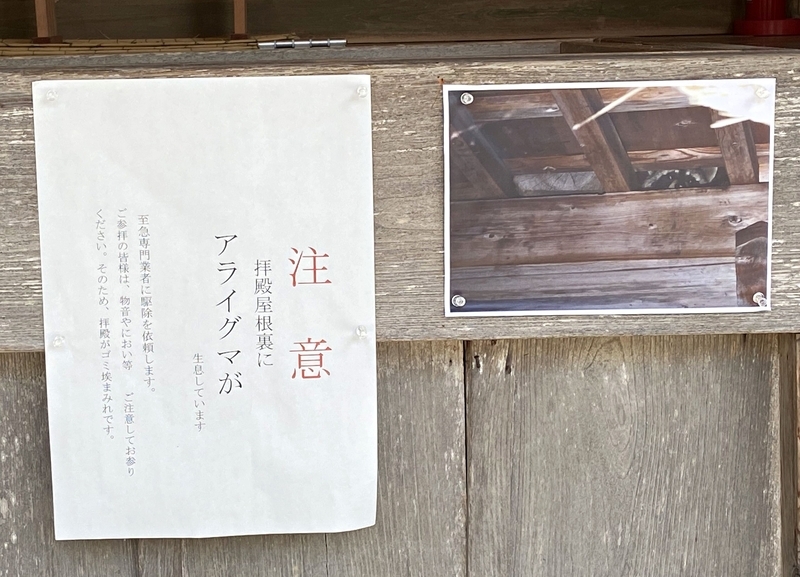 注意
拝殿屋根裏に
アライグマが
生息しています
至急専門業者に駆除を依頼します。
ご参拝の皆様は、物音やにおい等 ご注意してお参り
ください。そのため、拝殿がゴミ埃まみれです。